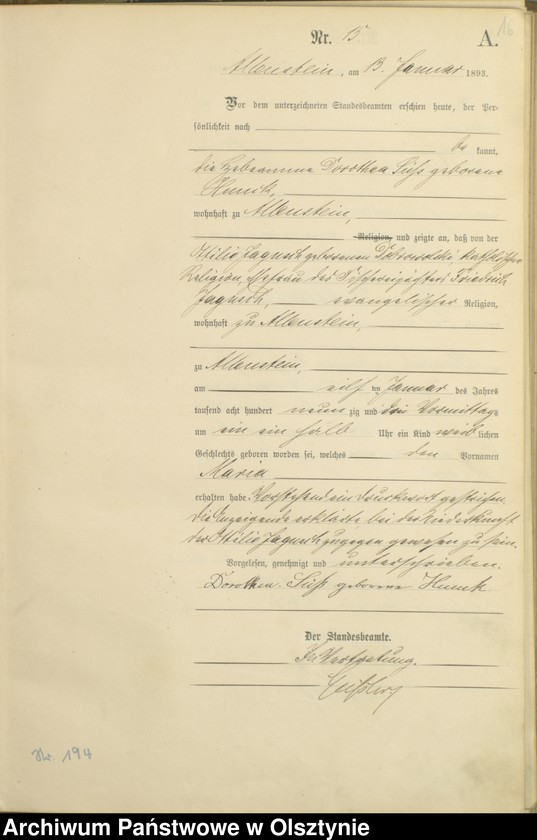 16
Nr. 15.
A.
Allenstein, am 13. Januar 1893.
Vor dem unterzeichneten Standesbeamten erschien heute, der Per-
sönlichkeit nach
be kannt,
die Hebeamme Dorothea Süß geborene
Hunck,
wohnhaft zu Allenstein,
Religion, und zeigte an, daß von der
Ottilie Jagusch geborenen Dabrowski, katholischer
Religion, Ehefrau des Fischereipächters Friedrich
Jagusch, evangelischer Religion,
wohnhaft zu Allenstein,
zu Allenstein,
am eilf ten Januar des Jahres
tausend acht hundert neun zig und drei Vormittags
um ein ein halb Uhr ein Kind weib lichen
Geschlechts geboren worden sei, welches den Vornamen
Maria
erhalten habe. Vorstehend ein Druckwort gestrichen.
Die Anzeigende erklärte, bei der Niederkunft
der Ottilie Jagusch zugegen gewesen zu sein.
Vorgelesen, genehmigt und unterschrieben.
Dorothea Süß geborene Hunck
Der Standesbeamte.
In Vertretung.
Nr. 194
Archiwum Państwowe w Olsztynie